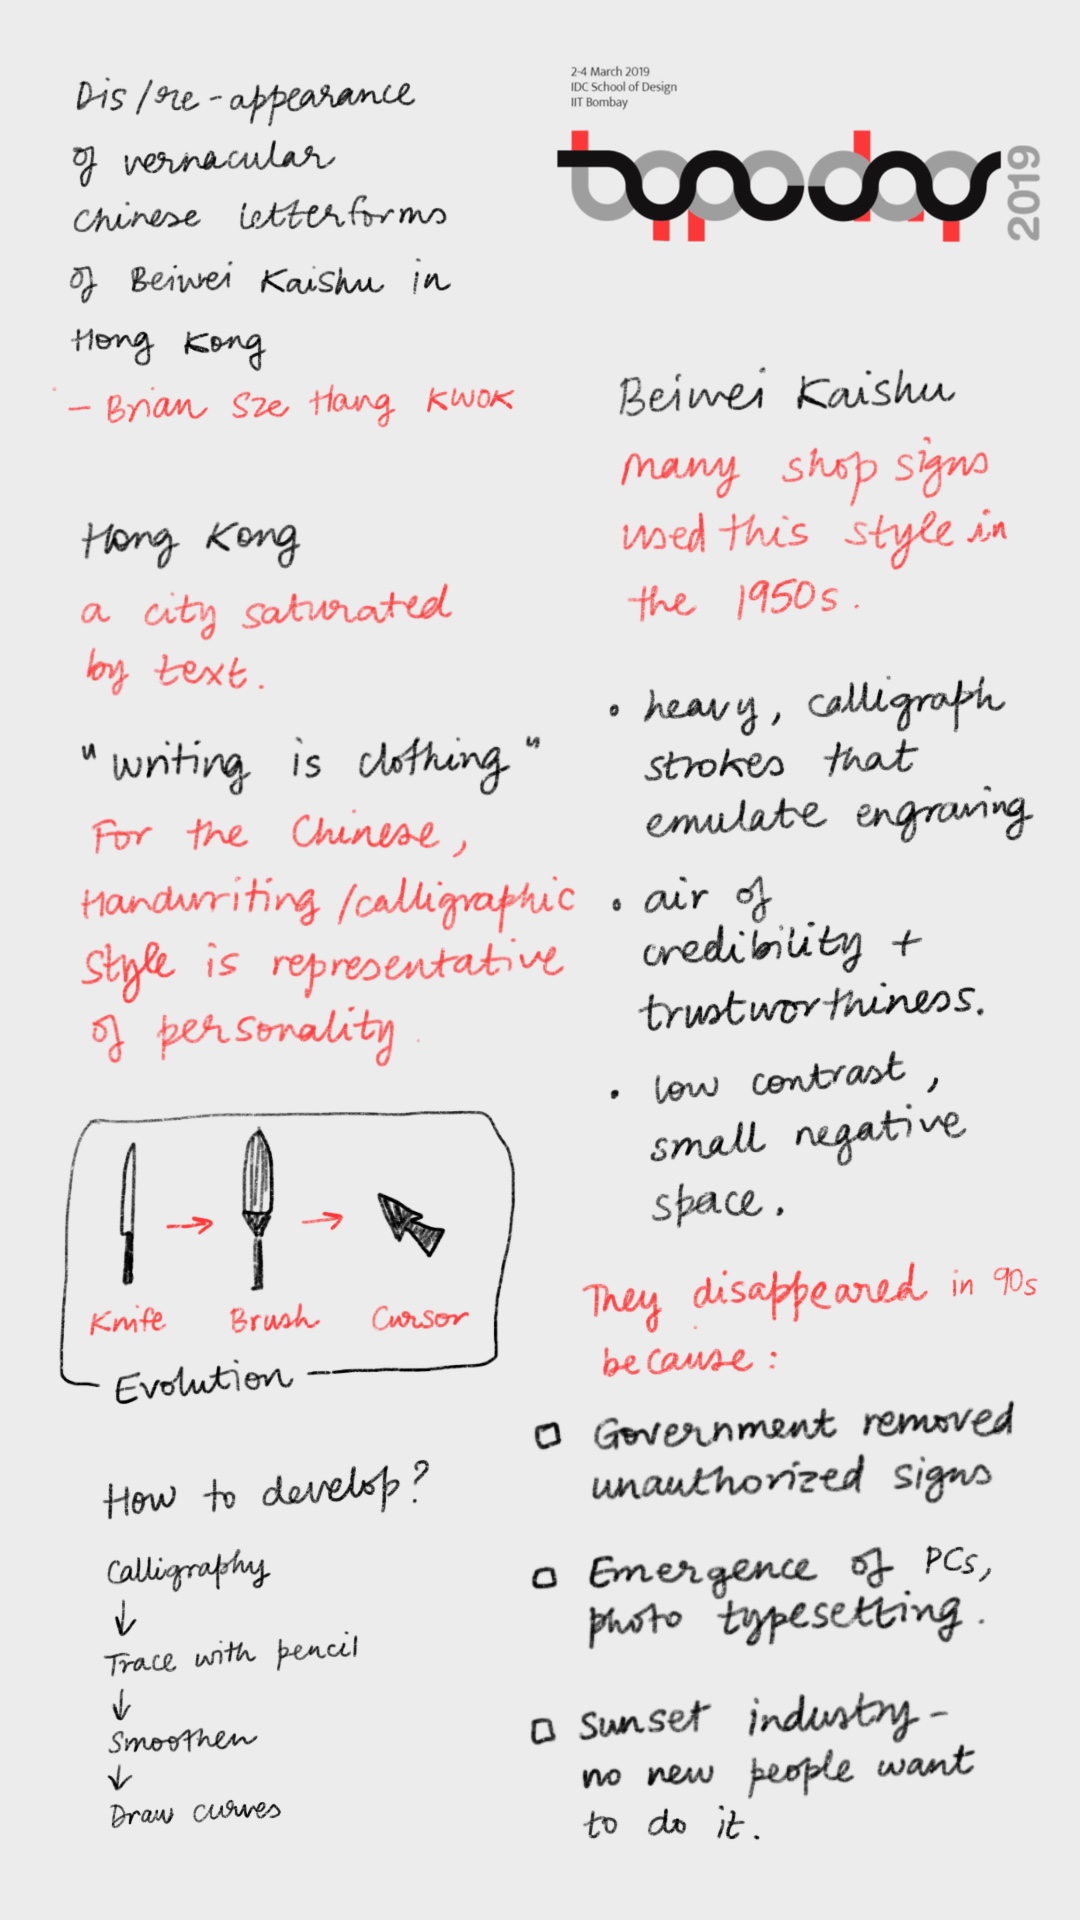 Dis/re-appearance
of vernacular
Chinese letterforms
of Beiwei Kaishu in
Hong Kong
– Brian Sze Hang KWOK
2-4 March 2019
IDC School of Design
IIT Bombay
typoday
2019
Hong Kong
a city saturated
by text.
"writing is clothing"
For the Chinese,
Handwriting/calligraphic
style is representative
of personality.
Knife → Brush → Cursor
Evolution
How to develop?
Calligraphy
↓
Trace with pencil
↓
Smoothen
↓
Draw curves
Beiwei Kaishu
Many shop signs
used this style in
the 1950s.
• heavy, calligraph
strokes that
emulate engraving
• air of
credibility +
trustworthiness.
• low contrast,
small negative
space.
They disappeared in 90s
because:
□ Government removed
unauthorized signs
□ Emergence of PCs,
photo typesetting.
□ Sunset industry –
no new people want
to do it.